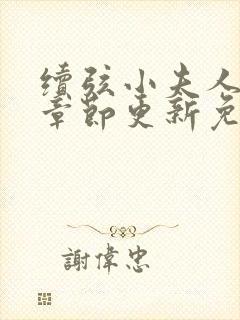 續弦小夫人
章節更新免
謝偉忠